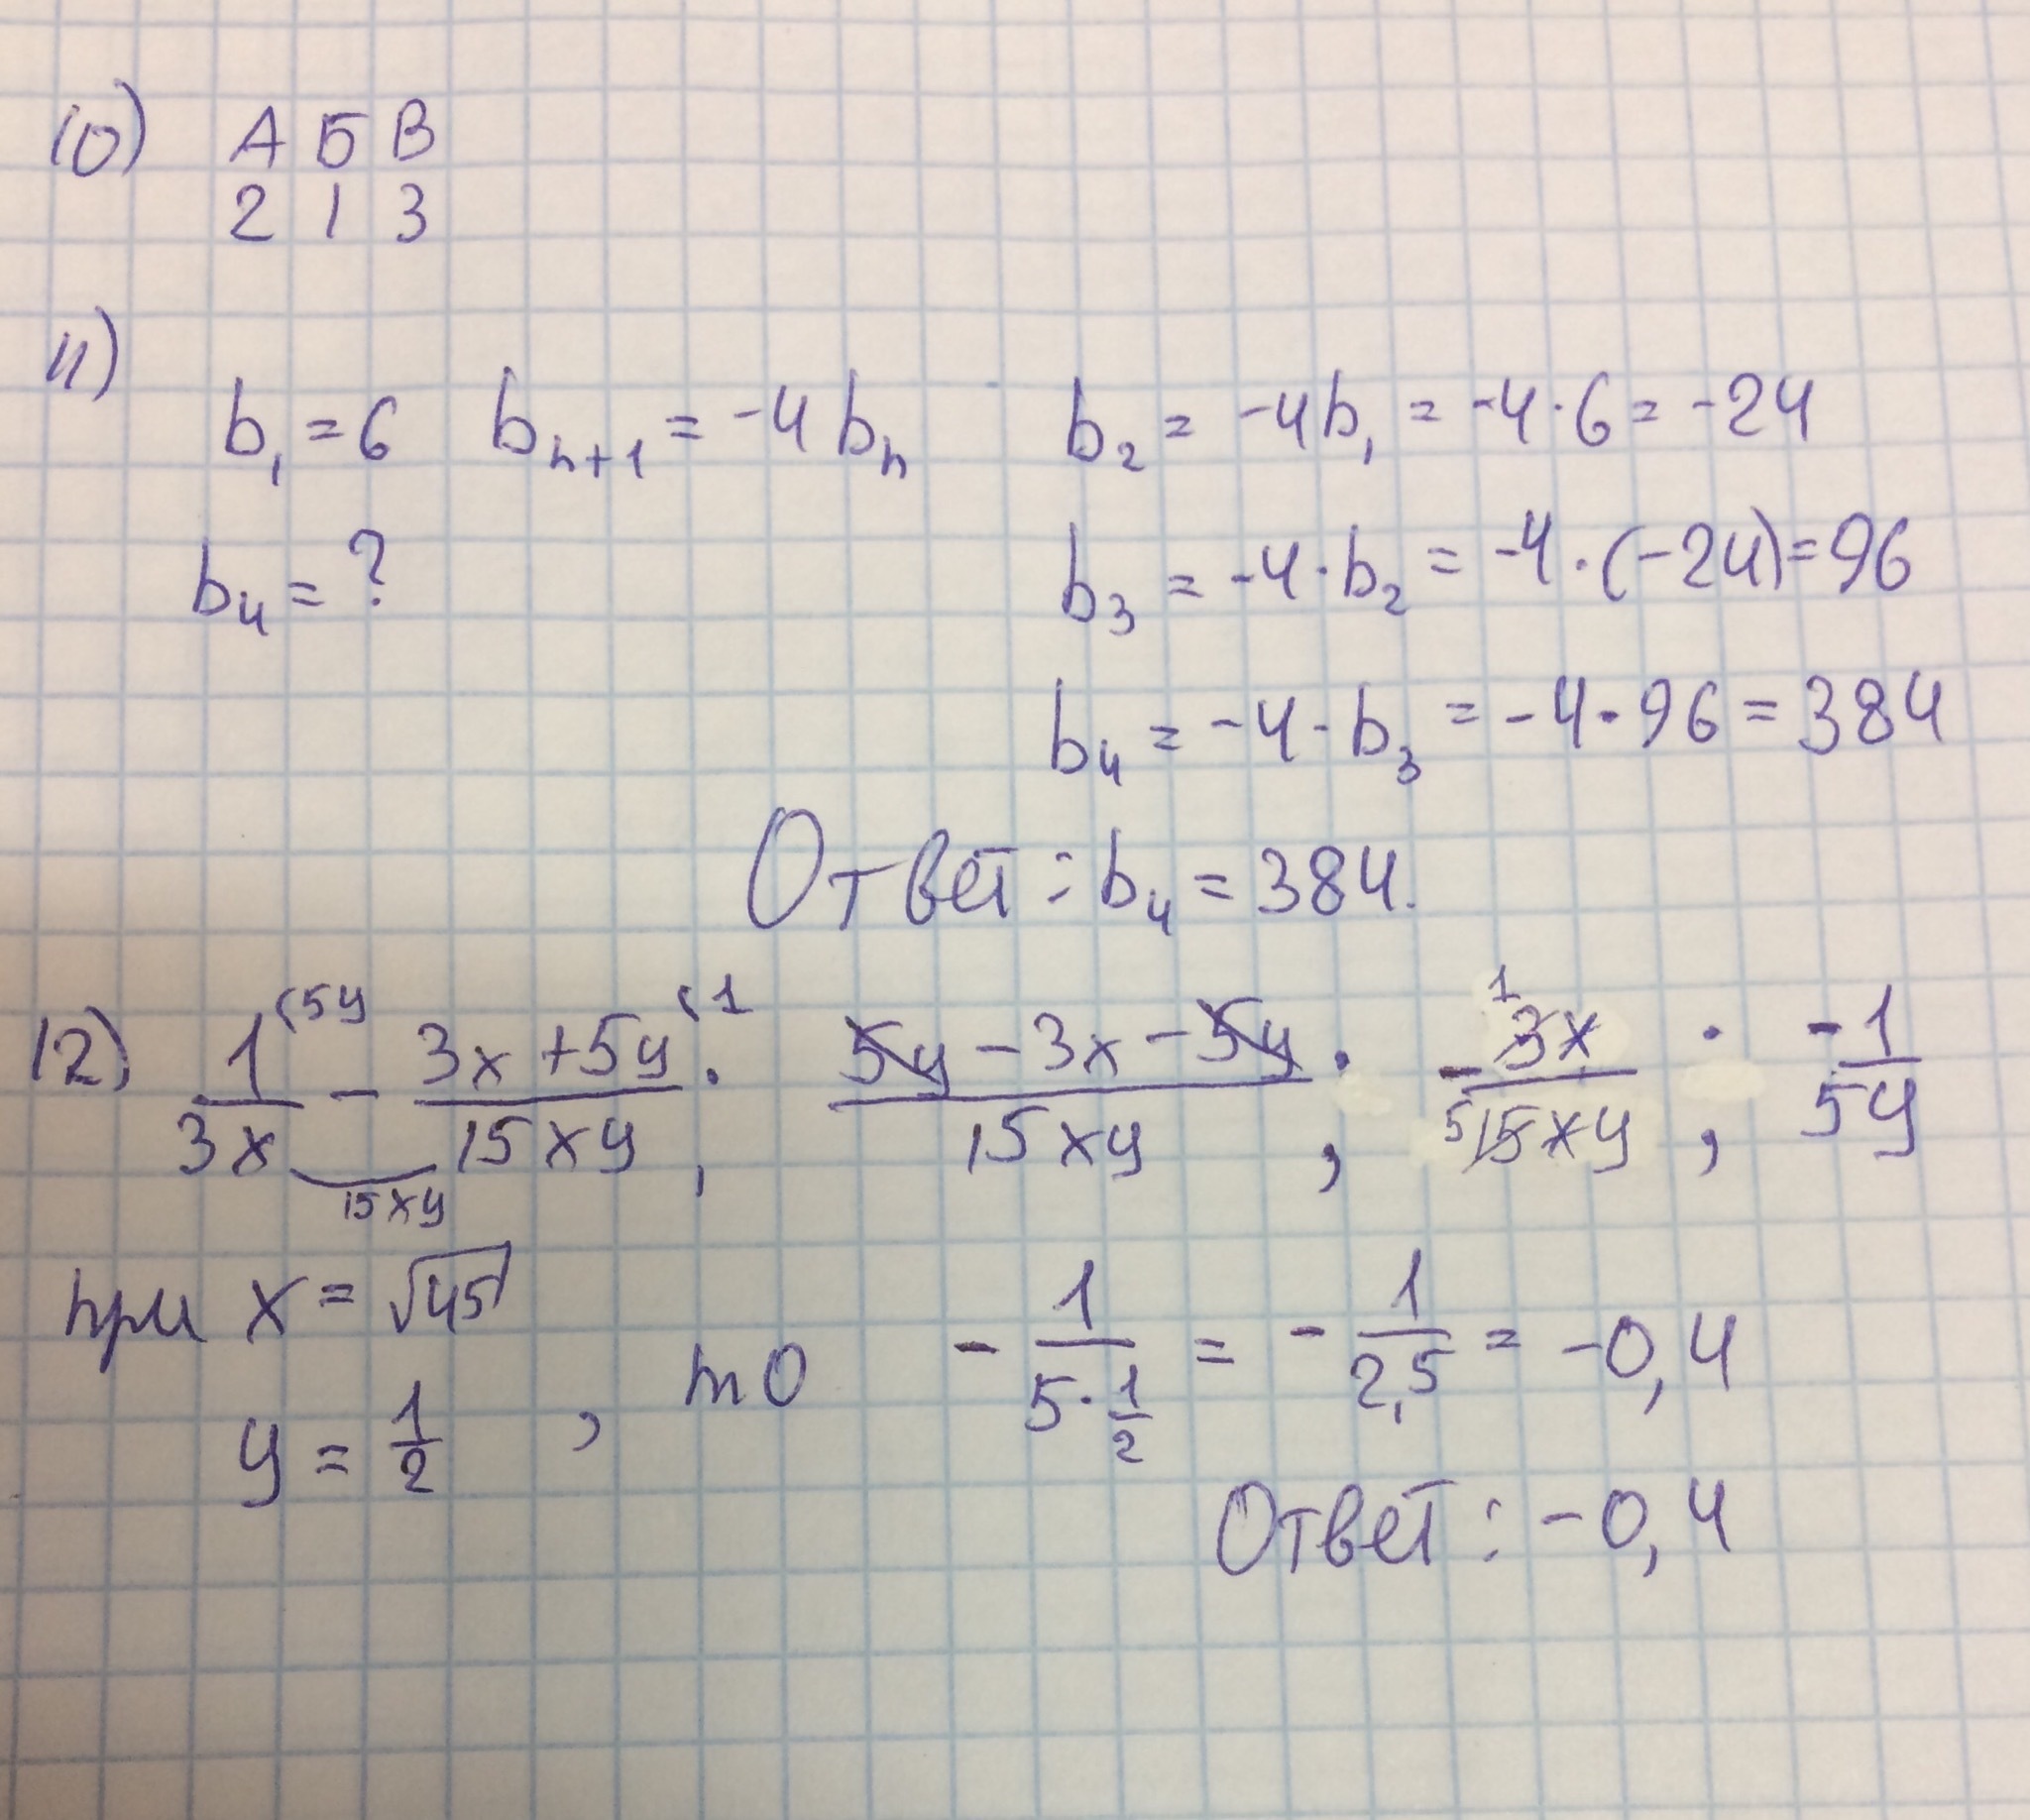 10) А Б В
2 1 3
11)
b₁ = 6 bₙ₊₁ = -4 bₙ b₂ = -4b₁ = -4·6 = -24
b₄ = ? b₃ = -4·b₂ = -4·(-24) = 96
b₄ = -4·b₃ = -4·96 = 384
Ответ: b₄ = 384.
12) 1/3x (5y - (3x + 5y)/15xy (1 ; (5y - 3x - 5y)/15xy ; - 1 3x/5 15xy ; -1/5y
15xy
при x = √45
y = 1/2 , то - 1/(5·1/2) = - 1/2,5 = -0,4
Ответ: -0,4